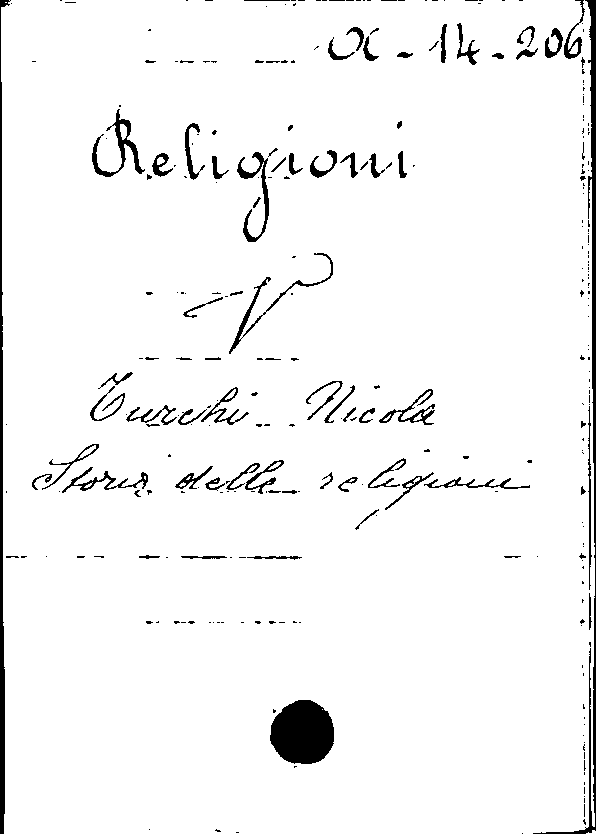 α - 14 - 206
Religioni
V
Turchi Nicola
Storia delle religioni